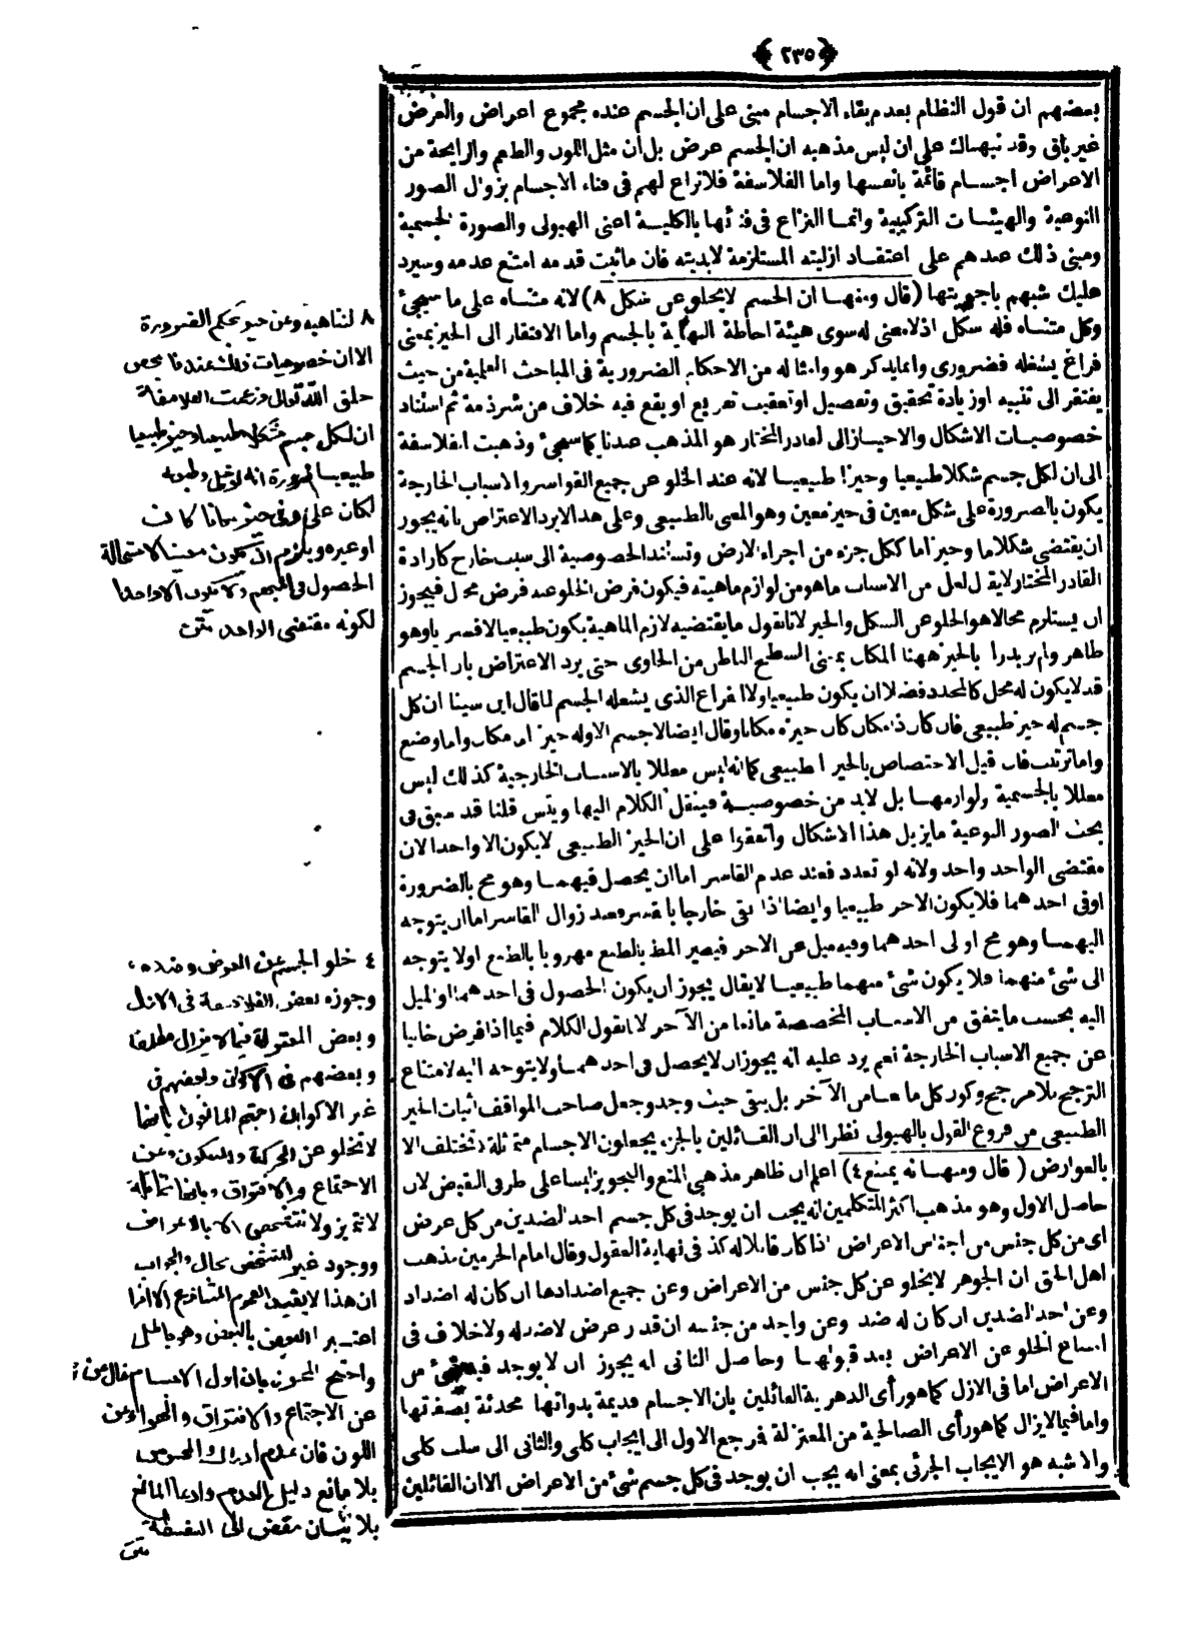 ﴿٢٣٥﴾
بعضهم ان قول النظام بعدم بقاء الاجسام مبنى على ان الجسم عنده مجموع اعراض والعرض
غير باق وقد نبهناك على ان ليس مذهبه ان الجسم عرض بل ان مثل اللون والطعم والرايحة من
الاعراض اجسام قائمة بانفسها واما الفلاسفة فلا نزاع لهم فى فناء الاجسام بزوال الصور
النوعية والهيئات التركيبية وانما النزاع فى فنائها بالكلية اعنى الهيولى والصورة الجسمية
ومبنى ذلك عندهم على اعتقاد ازليته المستلزمة لابديته فان ما ثبت قدمه امتنع عدمه وسيرد
عليك شبههم باجوبتها (قال ومنها ان الجسم لا يخلو عن شكل ٨) لانه متناه على ما سيجئ
وكل متناه فله شكل اذ لا معنى له سوى هيئة احاطة النهاية بالجسم واما الافتقار الى الحيز بمعنى
فراغ يشغله فضرورى وانما يذكر هو وامثاله من الاحكام الضرورية فى المباحث العلمية من حيث
يفتقر الى تنبيه او زيادة تحقيق وتفصيل او تعقيب تفريع او يقع فيه خلاف من شرذمة ثم استناد
خصوصيات الاشكال والاحياز الى القادر المختار هو المذهب عندنا كما سيجئ وذهبت الفلاسفة
الى ان لكل جسم شكلا طبيعيا وحيزا طبيعيا لانه عند الخلو عن جميع القواسر والاسباب الخارجة
يكون بالضرورة على شكل معين فى حيز معين وهو المعنى بالطبيعى وعلى هذا لا يرد الاعتراض بانه يجوز
ان يقتضى شكلا ما وحيزا ما ككل جزء من اجزاء الارض وتستند الخصوصية الى سبب خارج كارادة
القادر المختار لا يقال لعل من الاسباب ما هو من لوازم ماهيته فيكون فرض الخلو عنه فرض محال فيجوز
ان يستلزم محالا هو الخلو عن الشكل والحيز لانا نقول ما يقتضيه لازم الماهية يكون طبيعيا لا قسريا وهو
ظاهر ولم يريدوا بالحيز ههنا المكان بمعنى السطح الباطن من الحاوى حتى يرد الاعتراض بان الجسم
قد لا يكون له محل كالمحدد فضلا ان يكون طبيعيا ولا الفراغ الذى يشغله الجسم لما قال ابن سينا ان كل
جسم له حيز طبيعى فان كان ذا مكان كان حيزه مكانا وقال ايضا لا جسم الا وله حيز اما مكان واما وضع
واما ترتيب فان قيل الاختصاص بالحيز الطبيعى كما انه ليس معللا بالاسباب الخارجية كذلك ليس
معللا بالجسمية ولوازمها بل لابد من خصوصية فينقل الكلام اليها ويتس قلنا قد سبق فى
بحث الصور النوعية ما يزيل هذا الاشكال واتفقوا على ان الحيز الطبيعى لا يكون الا واحدا لان
مقتضى الواحد واحد ولانه لو تعدد فعند عدم القاسر اما ان يحصل فيهما وهو مح بالضرورة
او فى احدهما فلا يكون الاخر طبيعيا وايضا اذا بقى خارجا بالقسر فعند زوال القاسر اما ان يتوجه
اليهما وهو مح او الى احدهما وفيه ميل عن الاخر فيصير المط بالطبع مهروبا بالطبع او لا يتوجه
الى شئ منهما فلا يكون شئ منهما طبيعيا لا يقال يجوز ان يكون الحصول فى احدهما او الميل
اليه بحسب ما يتفق من الاسباب المخصصة مانعا من الآخر لانا نقول الكلام فيما اذا فرض خاليا
عن جميع الاسباب الخارجة نعم يرد عليه انه يجوز ان لا يحصل فى احدهما ولا يتوجه اليه لامتناع
الترجيح بلا مرجح وكون كل ما نعا من الآخر بل يبقى حيث وجد وجعل صاحب المواقف اثبات الحيز
الطبيعى من فروع القول بالهيولى نظرا الى ان القائلين بالجزء يجعلون الاجسام متماثلة لا تختلف الا
بالعوارض (قال ومنها انه يمتنع ٤) اعلم ان ظاهر مذهبى المنع والتجويز ليسا على طرفى النقيض لان
حاصل الاول وهو مذهب اكثر المتكلمين انه يجب ان يوجد فى كل جسم احد الضدين من كل عرض
اى من كل جنس من اجناس الاعراض اذا كان قابلا له كذا فى نهاية العقول وقال امام الحرمين مذهب
اهل الحق ان الجوهر لا يخلو عن كل جنس من الاعراض وعن جميع اضدادها ان كان له اضداد
وعن احد الضدين ان كان له ضد وعن واحد من جنسه ان قدر عرض لا ضد له ولا خلاف فى
امتناع الخلو عن الاعراض بعد قبولها وحاصل الثانى انه يجوز ان لا يوجد فيه شئ من
الاعراض اما فى الازل كما هو رأى الدهرية القائلين بان الاجسام قديمة بذواتها محدثة بصفتها
واما فيما لا يزال كما هو رأى الصالحية من المعتزلة فرجع الاول الى ايجاب كلى والثانى الى سلب كلى
والاشبه هو الايجاب الجزئى بمعنى انه يجب ان يوجد فى كل جسم شئ من الاعراض الا ان القائلين
٨ لتناهيه وعن حيز بحكم الضرورة
الا ان خصوصيات ذلك عندنا بمحض
خلق الله تعالى وزعمت الفلاسفة
ان لكل جسم شكلا طبيعيا وحيزا طبيعيا
طبيعيا ضرورة انه لو خلى وطبعه
لكان على وفى حيز سانا كانت
او غيره ويلزم ان يكون معينا لاستحالة
الحصول فى المبهم ولا يكون الا واحدا
لكونه مقتضى الواحد متن
٤ خلو الجسم عن العرض وضده
وجوزه بعض الفلاسفة فى الازل
وبعض المعتزلة فيما لا يزال مطلقا
وبعضهم فى الاكوان وبعضهم فى
غير الاكوان احتج المانعون بانها
لا تخلو عن الحركة والسكون وعن
الاجتماع والافتراق وبانها متماثلة
لا تتميز ولا تتشخص الا بالاعراض
ووجود غير المتشخص محال والجواب
ان هذا لا يفيد العموم المتنازع الا اذا
اعتبر البعض بالبعض وهو باطل
واحتج المجوز بان اول الاجسام خال عن
عن الاجتماع والافتراق والهواء عن
اللون فان عدم ادراك المحسوس
بلا مانع دليل العدم وادعاء المانع
بلا بيان مفض الى السفسطة
متن